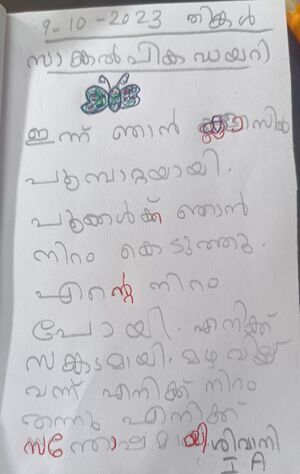 9-10-2023 തിങ്കൾ
സാങ്കൽപിക ഡയറി
ഇന്ന് ഞാൻ ക്ലാസിൽ
പൂമ്പാറ്റയായി.
പൂക്കൾക്ക് ഞാൻ
നിറം കൊടുത്തു.
എന്റെ നിറം
പോയി. എനിക്ക്
സങ്കടമായി. മഴവില്ല്
വന്ന് എനിക്ക് നിറം
തന്നു എനിക്ക്
സന്തോഷമായി ശിവാനി
I A